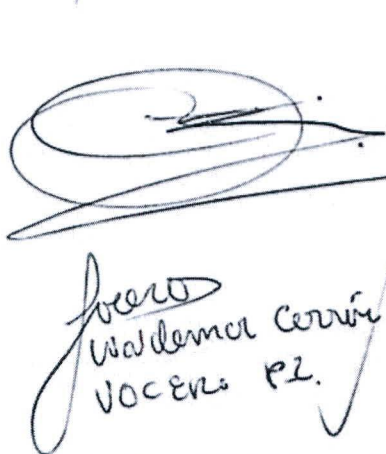 Waldemar Cerrón
VOCERO PL.